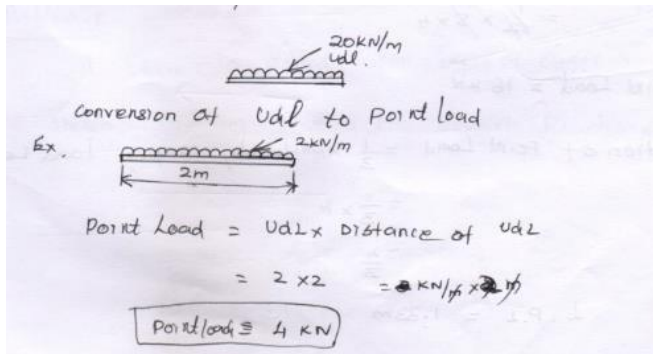 20KN/m
Udl.
Conversion of Udl to Point load
Ex.
2KN/m
2m
Point Load = UdL x Distance of UdL
= 2 x2 = KN/m x m
Point load = 4 KN